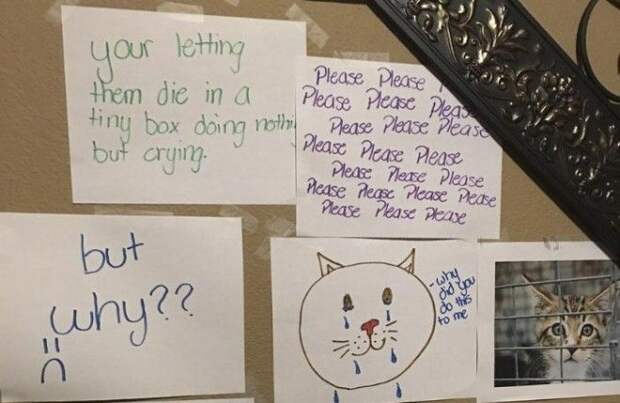 your letting
them die in a
tiny box doing
but crying.
Please Please
Please Please
Please Please Please
Please Please Please
Please Please Please
Please Please Please Please
Please Please Please
but
why??
-why
did you
do this
to me